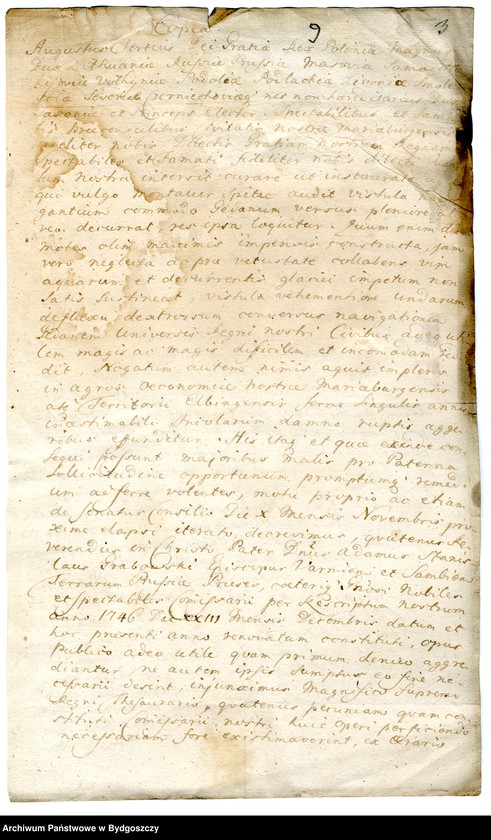 Copia 9 3
Augustus Tertius Dei Gratia Rex Poloniæ Magnus
Dux Lithuaniæ Russiæ Prussiæ Masoviæ Sama
Kijoviæ Volhyniæ Podoliæ Podlachiæ Livoniæ Smole
sciæ Severiæ Czerniechoviæq nec non hæreditarius Dux
Saxoniæ et Princeps Elector. Spectabilibus et Fam
Proconsulibus Civitatis nostræ Mariaeburgensis
fideliter nobis Dilectis Gratiam Nostram Regiam
Spectabiles et Famati fideliter nobis dilecti
nostra intersit curare ut instauratio
qui vulgo montauer Spitze audit Vistula
gantium commoda Gedanum versus pleniore
veo decurrat res ipsa loquitur. Quum enim
motes olim maximis impensis constructa, jam
vero neglecta ac præ vetustate collabens vim
aquarum et decurrentis glaciei impetum non
satis sustineat, Vistula vehementiore undarum
deflexu dextrorsum conversus navigationem
Gedanem Universis Regni nostri Civibus adeo uti
lem magis ac magis difficilem et incomodam red
dit, Nogatum autem nimis aquis implens
in agros œconomiæ nostræ Mariæburgensis
atq Territorii Elbingensis ferme singulis annis
inæstimabili Incolarum damno ruptis agge
ribus effunditur. His itaq et quæ exinde con
sequi possunt majoribus malis pro Paterna
Sollicitudine opportunum promptumq remedi
um adferre volentes, motu proprio ac etiam
de Senatus Consilio Die X Mensis Novembris pro
xime elapsi iterato decrevimus, quatenus Re
verendus in Christo Pater Dnus Adamus Stanis
laus Grabowski Episcopus Varmiensis et Sambiensis
Terrarum Prussiæ Præses, cæteriq Gnosi Nobiles
et Spectabiles Comissarii per Rescriptum nostrum
anno 1746 Die XXIII Mensis Decembris datum et
hoc præsenti anno renovatum constituti, opus
publico adeo utile quam primum, denuo aggre
diantur, ne autem ipsis sumptus eo fine ne
cessarii desint, injunximus Magnifico Supremo
Regni Thesaurario, quatenus pecuniam quam con
stituti Comissarii nostri huic operi perficiendo
necessariam fore existimaverint, ex Ærario
Archiwum Państwowe w Bydgoszczy